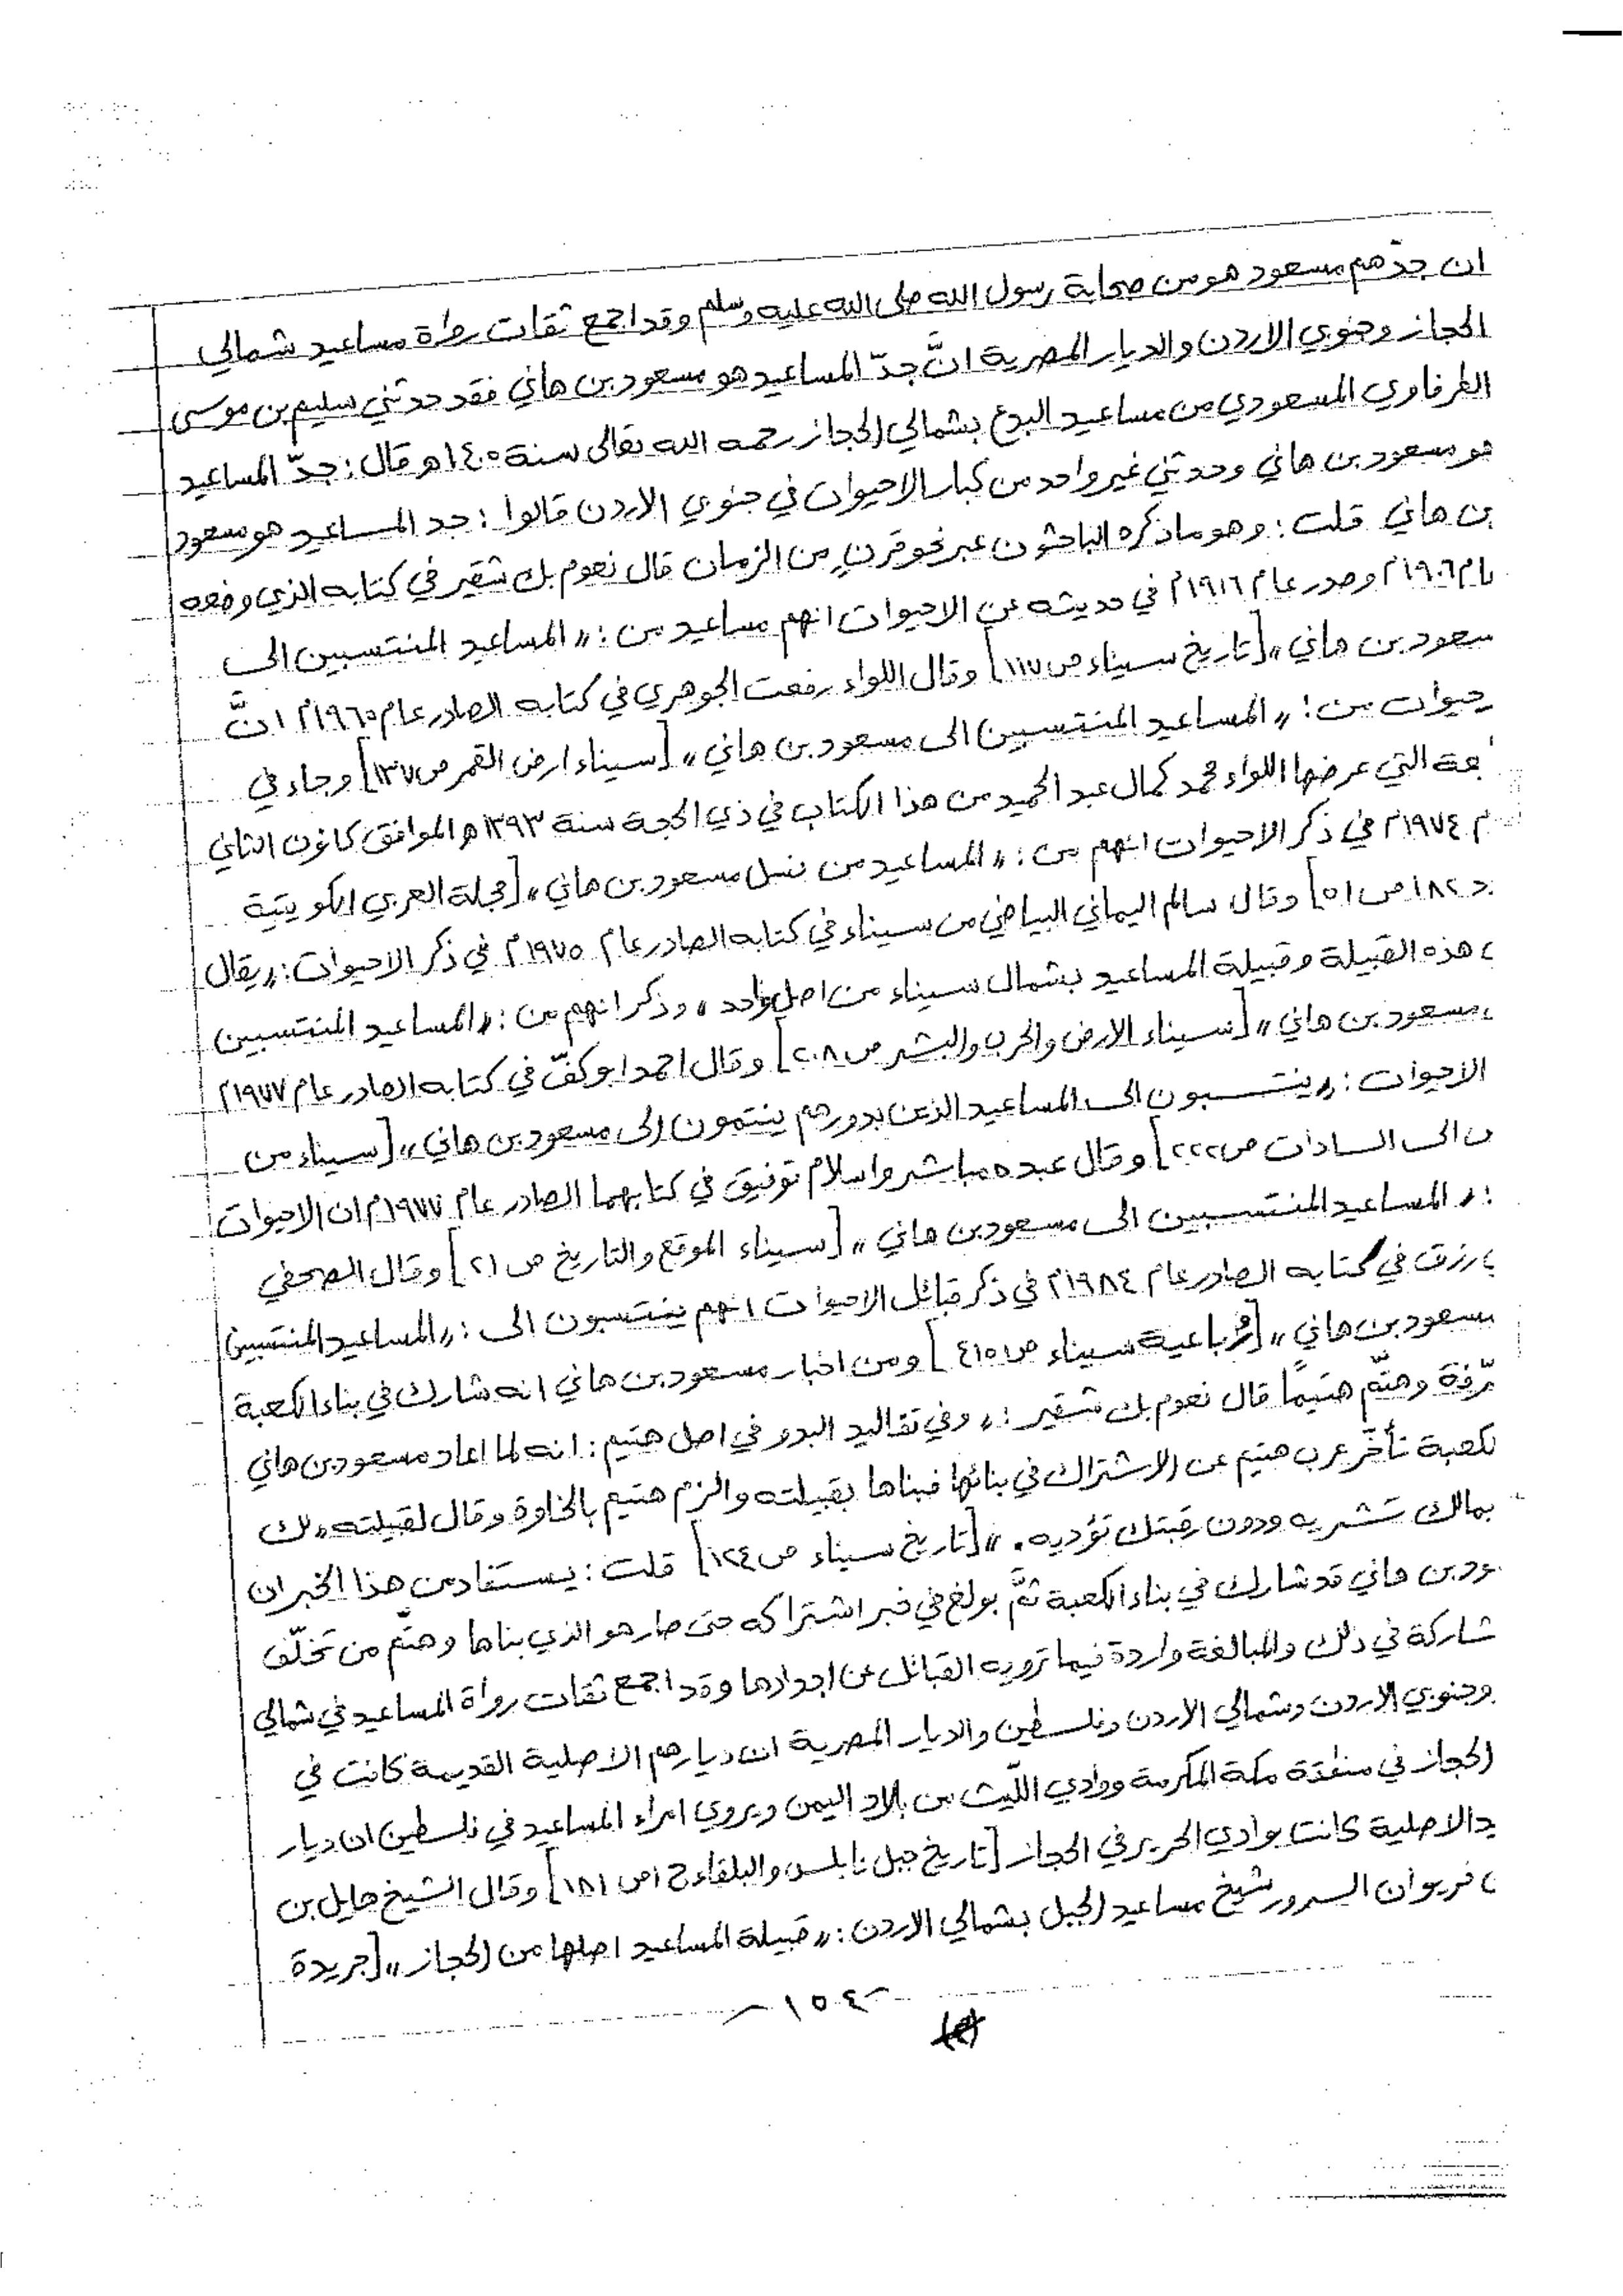 ان جدّهم مسعود هو من صحابة رسول الله صلى الله عليه وسلم وقد اجمع ثقات رواة مساعيد شمالي
الحجاز وجنوبي الاردن والديار المصرية انَّ جدّ المساعيد هو مسعود بن هاني فقد حدثني سليم بن موسى
الطرفاوي المسعودي من مساعيد البدع بشمالي الحجاز رحمه الله تعالى سنة ١٤٠٠هـ قال: جدّ المساعيد
هو مسعود بن هاني وحدثني غير واحد من كبار الاحيوات في جنوبي الاردن قالوا: جد المساعيد هو مسعود
بن هاني قلت: وهو ما ذكره الباحثون عبر نحو قرنٍ من الزمان قال نعوم بك شقير في كتابه الذي وضعه
ام ١٩٠٦م وصدر عام ١٩١٦م في حديثه عن الاحيوات انهم مساعيد من: „المساعيد المنتسبين الى
سعود بن هاني„ [تاريخ سيناء ص ١١٧] وقال اللواء رفعت الجوهري في كتابه الصادر عام ١٩٦٥م انَّ
حيوات من: „المساعيد المنتسبين الى مسعود بن هاني„ [سيناء ارض القمر ص ١٣٧] وجاء في
جعة التي عرضها اللواء محمد كمال عبد الحميد من هذا الكتاب في ذي الحجة سنة ١٣٩٣هـ الموافق كانون الثاني
م ١٩٧٤م في ذكر الاحيوات انهم من: „المساعيد من نسل مسعود بن هاني„ [مجلة العربي الكويتية
دد ١٨٢ ص ٥١] وقال سالم اليماني البياضي من سيناء في كتابه الصادر عام ١٩٧٥م في ذكر الاحيوات: „يقال
هذه القبيلة وقبيلة المساعيد بشمال سيناء من اصل واحد„ وذكر انهم من: „المساعيد المنتسبين
مسعود بن هاني„ [سيناء الارض والحرب والبشر ص ٢٠٨] وقال احمد ابو كفّ في كتابه الصادر عام ١٩٧٧م
الاحيوات: „ينتسبون الى المساعيد الذين بدورهم ينتمون الى مسعود بن هاني„ [سيناء من
ن الى السادات ص ٢٢٢] وقال عبده مباشر واسلام توفيق في كتابهما الصادر عام ١٩٧٧م ان الاحيوات
: „المساعيد المنتسبين الى مسعود بن هاني„ [سيناء الموقع والتاريخ ص ٢١] وقال الصحفي
رزق في كتابه الصادر عام ١٩٨٤م في ذكر قبائل الاحيوات انهم ينتسبون الى: „المساعيد المنتسبين
مسعود بن هاني„ [رُباعية سيناء ص ٤١٥] ومن اخبار مسعود بن هاني انه شارك في بناء الكعبة
رّفة وهتّم هتيمًا قال نعوم بك شقير: „وفي تقاليد البدو في اصل هتيم: انه لما اعاد مسعود بن هاني
لكعبة تأخّر عرب هتيم عن الاشتراك في بنائها فبناها بقبيلته والزم هتيم بالخاوة وقال لقبيلته „لك
بمالك تشريه ودون رقبتك تؤديه.„ [تاريخ سيناء ص ١٢٤] قلت: يستفاد من هذا الخبر ان
ود بن هاني قد شارك في بناء الكعبة ثمَّ بولغ في خبر اشتراكه حتى صار هو الذي بناها وهتّم من تخلّف
شاركة في ذلك والمبالغة واردة فيما ترويه القبائل عن اجدادها وقد اجمع ثقات رواة المساعيد في شمالي
وجنوبي الاردن وشمالي الاردن وفلسطين والديار المصرية ان ديارهم الاصلية القديمة كانت في
الحجاز في منطقة مكة المكرمة ووادي اللّيث من بلاد اليمن ويروي امراء المساعيد في فلسطين ان ديار
يد الاصلية كانت بوادي الحرير في الحجاز [تاريخ جبل نابلس والبلقاء ج ١ ص ١٨١] وقال الشيخ هايل بن
فريوان السرور شيخ مساعيد الجبل بشمالي الاردن: „قبيلة المساعيد اصلها من الحجاز„ [جريدة
-١٥٤-